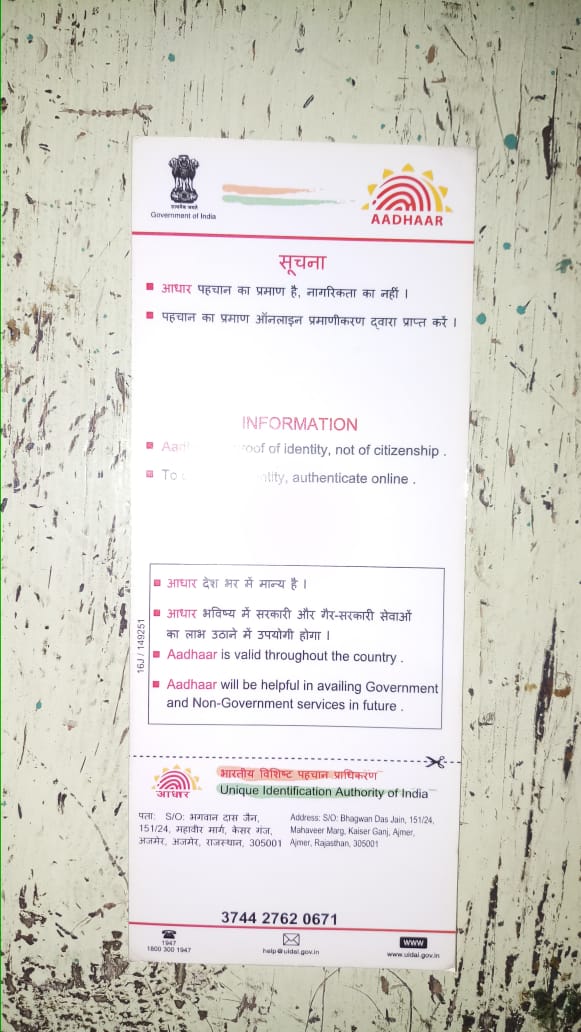 सत्यमेव जयते
Government of India
AADHAAR
सूचना
आधार पहचान का प्रमाण है, नागरिकता का नहीं ।
पहचान का प्रमाण ऑनलाइन प्रमाणीकरण द्वारा प्राप्त करें ।
INFORMATION
of identity, not of citizenship .
To authenticate online .
आधार देश भर में मान्य है ।
आधार भविष्य में सरकारी और गैर-सरकारी सेवाओं
का लाभ उठाने में उपयोगी होगा ।
Aadhaar is valid throughout the country .
Aadhaar will be helpful in availing Government
and Non-Government services in future .
16J / 149251
आधार
भारतीय विशिष्ट पहचान प्राधिकरण
Unique Identification Authority of India
पता: S/O: भगवान दास जैन,
151/24, महावीर मार्ग, केसर गंज,
अजमेर, अजमेर, राजस्थान, 305001
Address: S/O: Bhagwan Das Jain, 151/24,
Mahaveer Marg, Kaiser Ganj, Ajmer,
Ajmer, Rajasthan, 305001
3744 2762 0671
1947
1800 300 1947
help@uidai.gov.in
WWW
www.uidai.gov.in